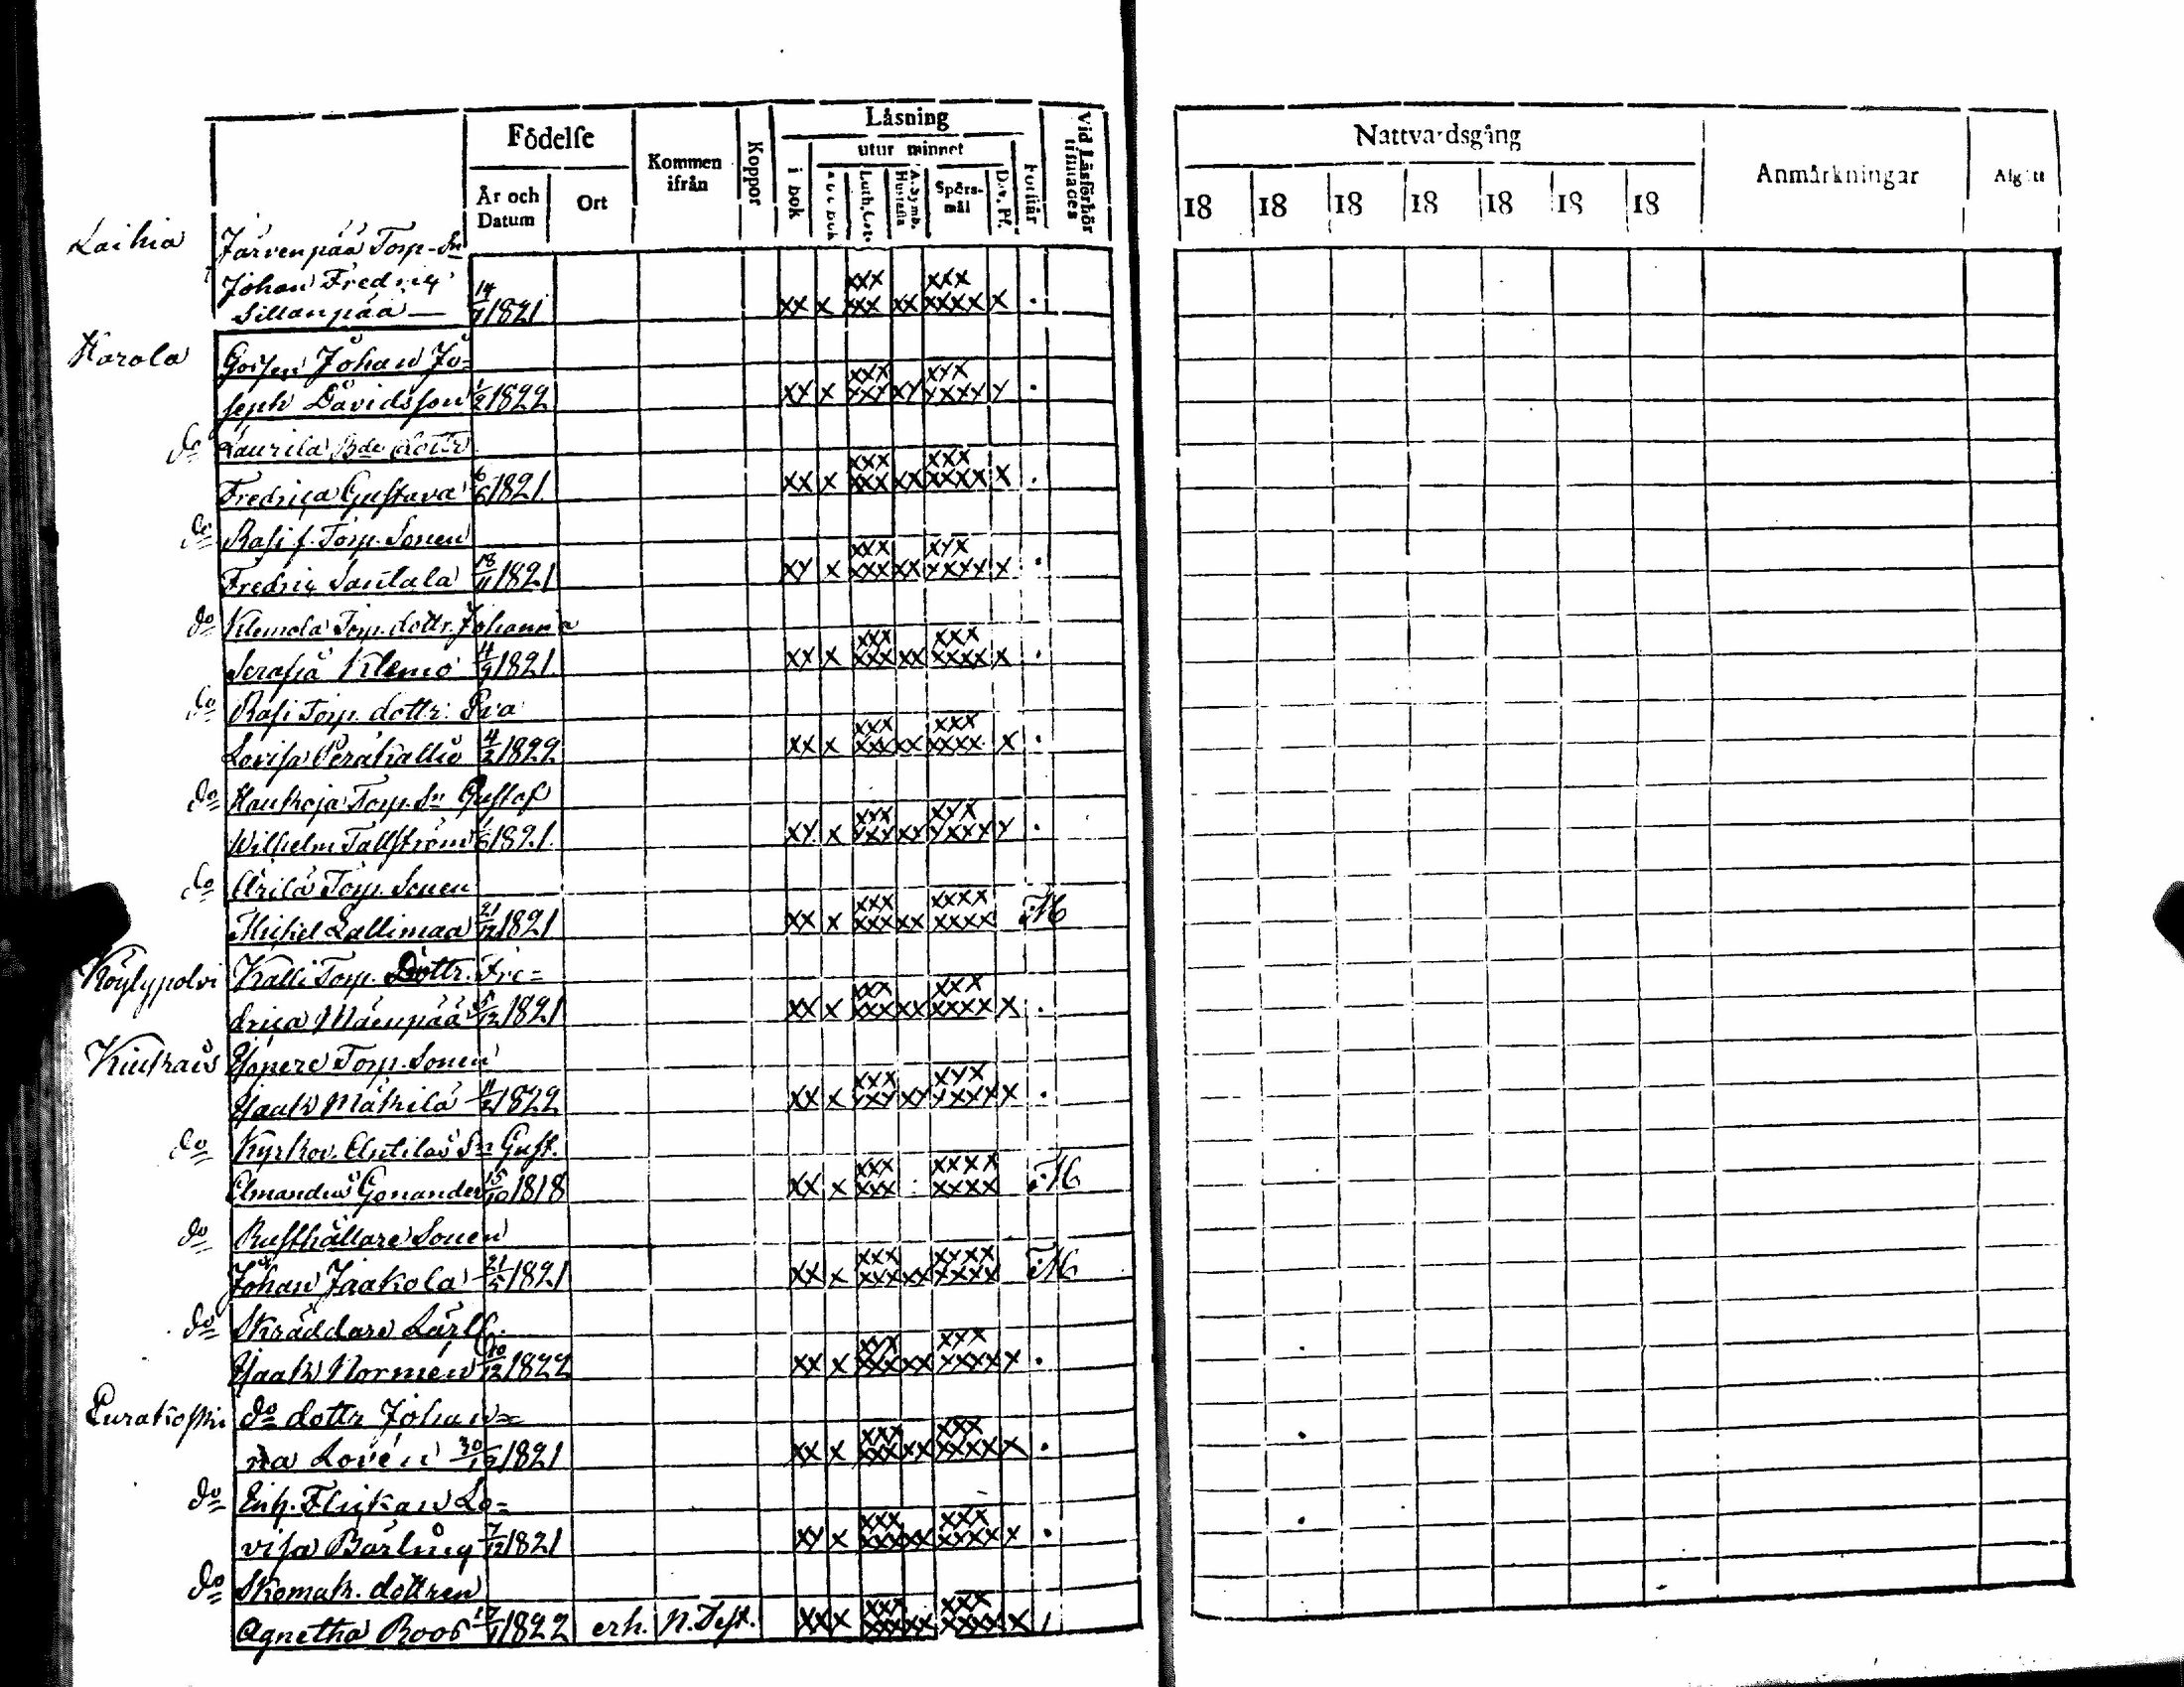 Födelse
Kommen ifrån
Koppor
Läsning
utur minnet
Vid Läsförhör
År och Datum
Ort
i bok
Spörsmål
Nattvardsgång
Anmärkningar
18 18 18 18 18 18 18
Laihia Järvenpää Torp. Sn
Johan Fredric
Sillanpää 1821 xx x xxx xxx xx xxx xxxx x .
Karola Johan Jo=
seph Davidsson 1/2 1822 xx x xxx xxx xx xxx xxxx x .
do Laurila Bde dottr
Fredrica Gustava 6/6 1821 xx x xxx xxx xx xxx xxxx x .
do Rasi f. Torp. Sonen
Fredric Santala 18/11 1821 xx x xxx xxx xx xxx xxxx x .
do Klemola Torp. dottr. Johanna
Serafia Klemo 4/9 1821 xx x xxx xxx xx xxx xxxx x .
do Rasi Torp. dottr. Eva
Lovisa Peräkallio 4/2 1822 xx x xxx xxx xx xxx xxxx x .
do Torp. Sn Gustaf
Wilhelm Tallström 1821 xx x xxx xxx xx xxx xxxx x .
do Torp. Sonen
Michel Lallimaa 21/12 1821 xx x xxx xxx xx xxxx xxxx
Köylypolvi Kalli Torp. Dottr. Fre=
drica Mäenpää 5/12 1821 xx x xxx xxx xx xxx xxxx x .
Kiukais Torp. Sonen
Isaak Mathila 11/2 1822 xx x xxx xxx xx xxx xxxx x .
do Kyrkov. Antilas Sn Gust.
Amandus Gonander 15/10 1818 xx x xxx xxx : xxxx xxxx
do Rusthållare Sonen
Johan Jaakola 21/5 1821 xx x xxx xxx xx xxxx xxxx
do Skräddare Lärl.
Isaak Normén 10/12 1822 xx x xxx xxx xx xxx xxxx x .
Eurakoski do dottr Johan=
na Lovén 30/12 1821 xx x xxx xxx xx xxx xxxx x .
do Enk. Flickan Lo=
visa Bärling 7/12 1821 xx x xxx xxx xx xxx xxxx x .
do Skomak. dottren
Agnetha Roos 1822 erh. N. Test. xx x xxx xxx xx xxx xxxx x